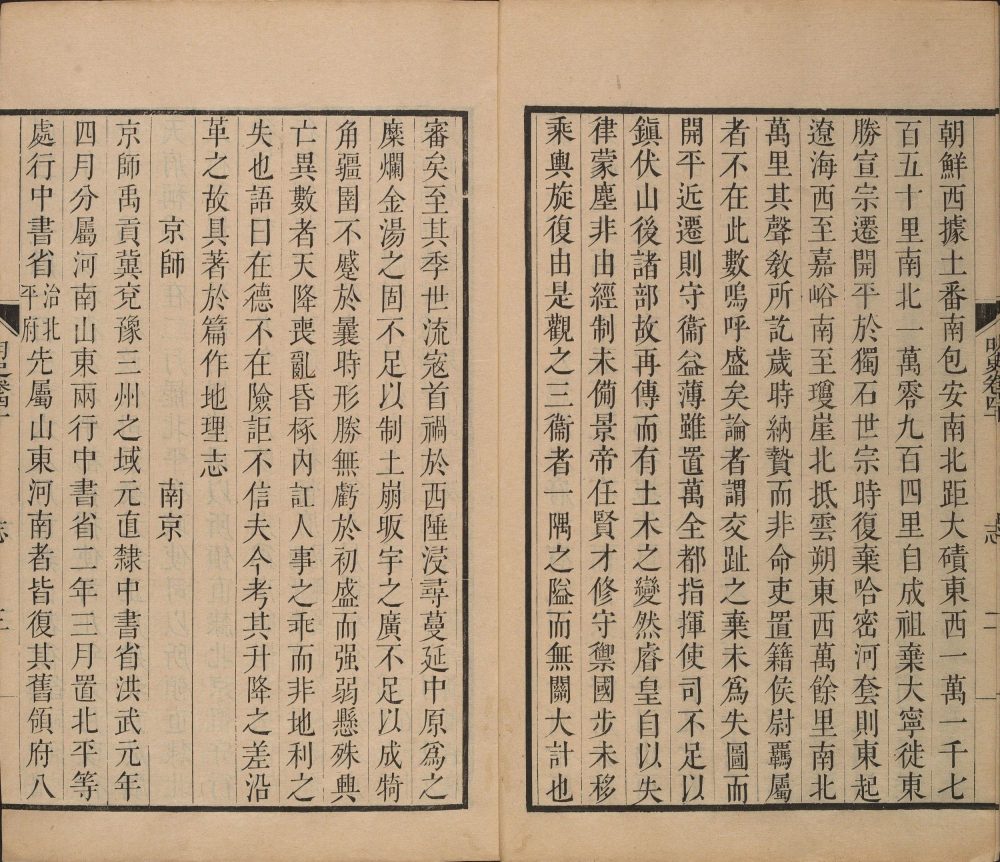 朝鮮西據土番南包安南北距大磧東西一萬一千七
百五十里南北一萬零九百四里自成祖棄大寧徙東
勝宣宗遷開平於獨石世宗時復棄哈密河套則東起
遼海西至嘉峪南至瓊崖北抵雲朔東西萬餘里南北
萬里其聲敎所訖歲時納贄而非命吏置籍侯尉羈屬
者不在此數嗚呼盛矣論者謂交趾之棄未爲失圖而
開平近遷則守衞益薄雖置萬全都指揮使司不足以
鎭伏山後諸部故再傳而有土木之變然睿皇自以失
律蒙塵非由經制未備景帝任賢才修守禦國步未移
乘輿旋復由是觀之三衞者一隅之隘而無關大計也
明史卷四十
志
二
審矣至其季世流寇首禍於西陲浸尋蔓延中原爲之
糜爛金湯之固不足以制土崩坂宇之廣不足以成犄
角疆圉不蹙於曩時形勝無虧於初盛而强弱懸殊興
亡異數者天降喪亂昏椓內訌人事之乖而非地利之
失也語曰在德不在險詎不信夫今考其升降之差沿
革之故具著於篇作地理志
京師 南京
京師禹貢冀兗豫三州之域元直隸中書省洪武元年
四月分屬河南山東兩行中書省二年三月置北平等
處行中書省治北平府先屬山東河南者皆復其舊領府八
志
三